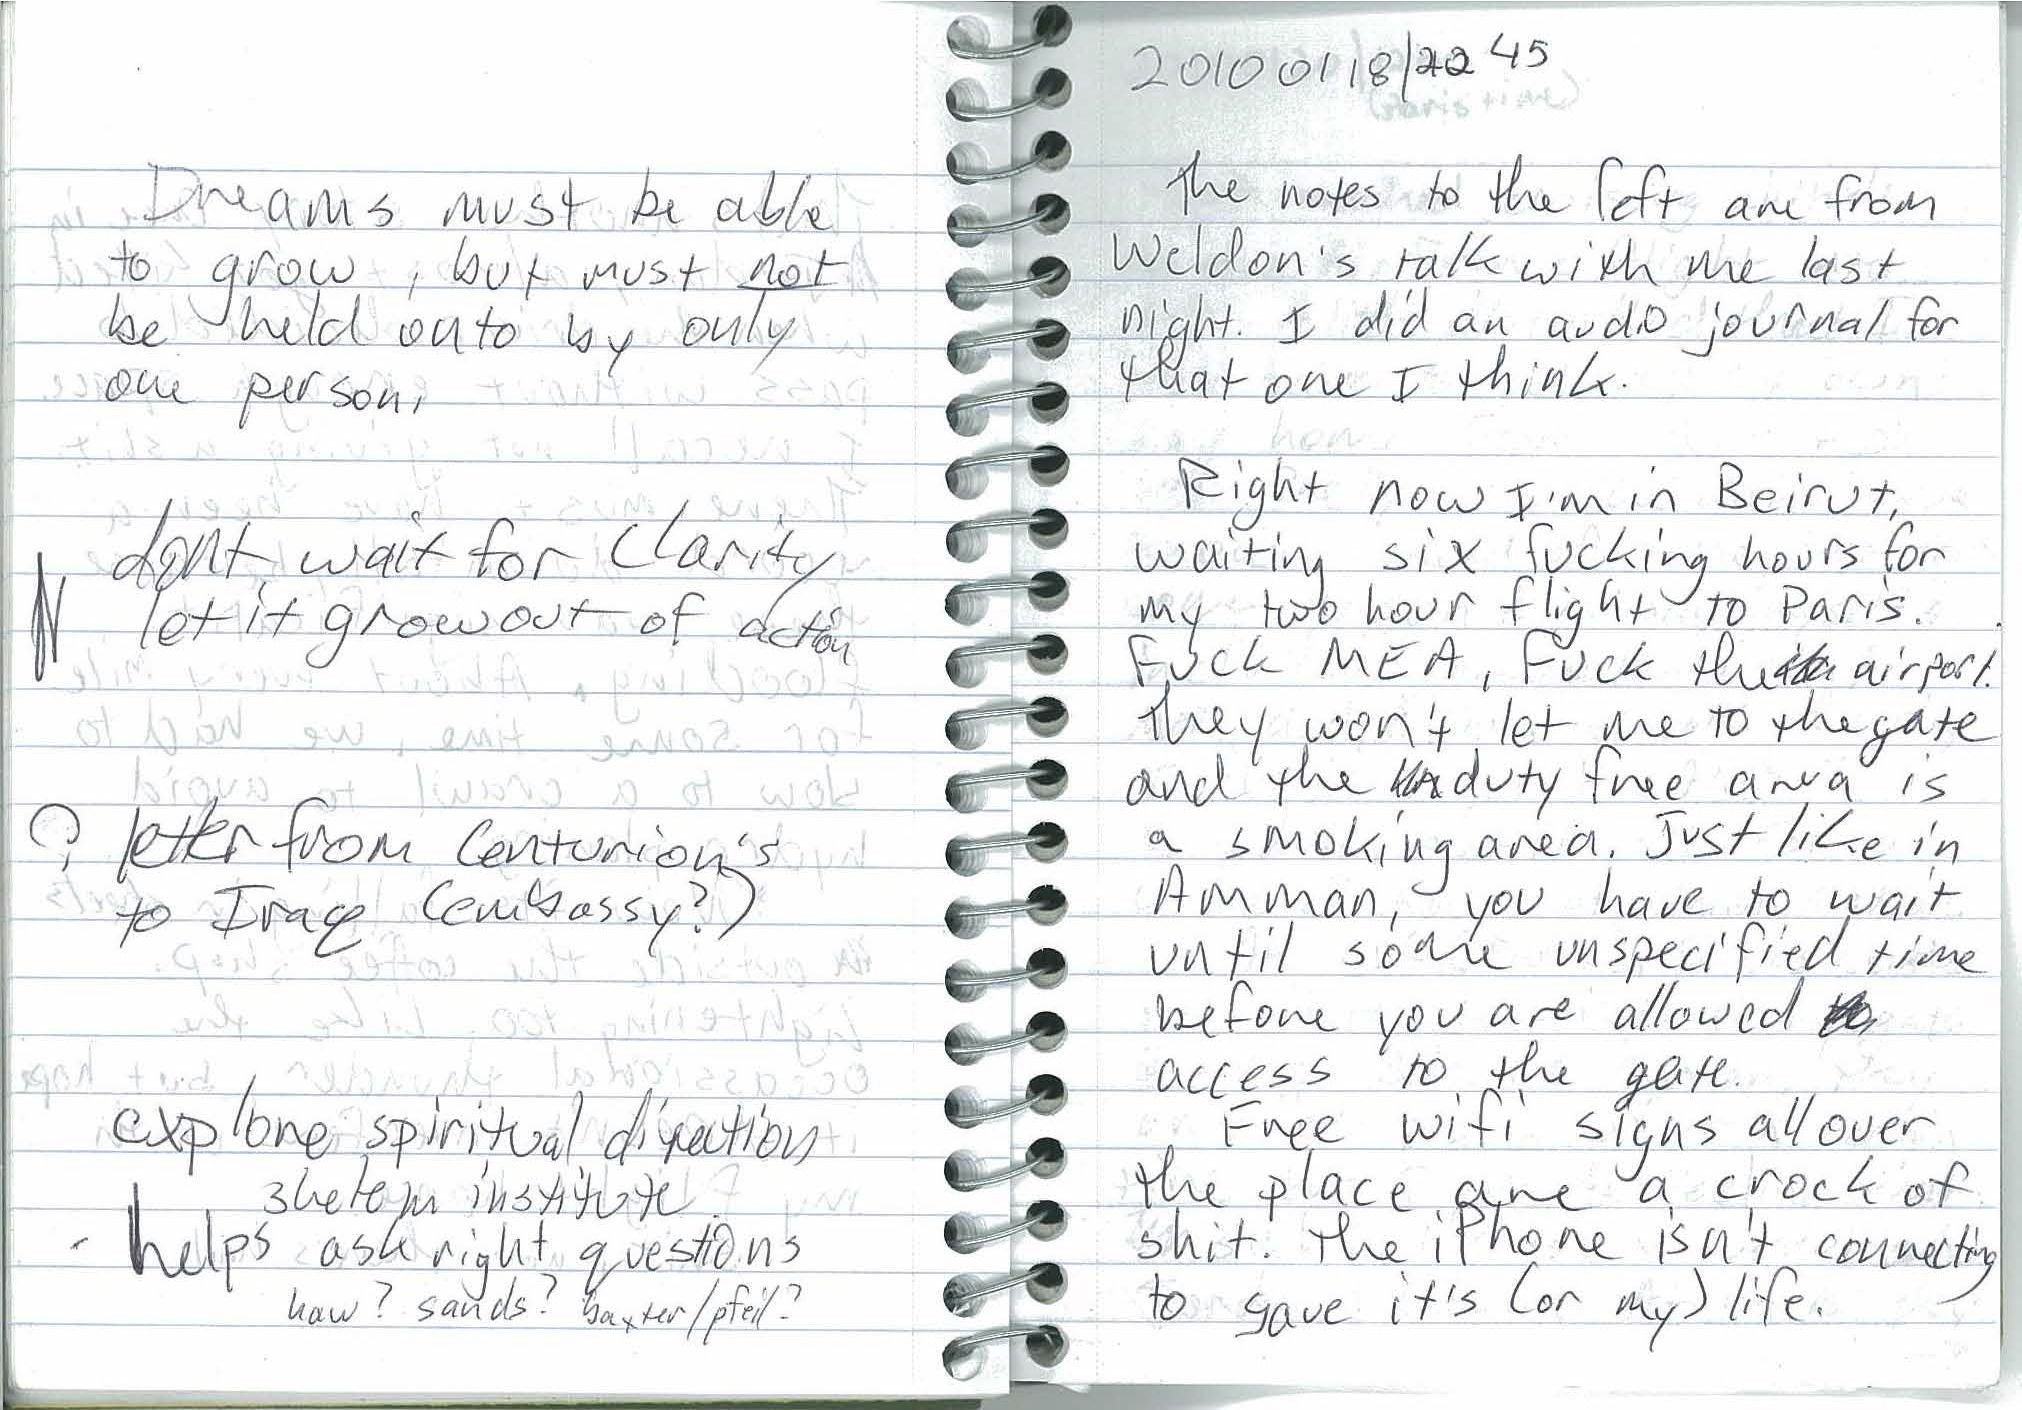 Dreams must be able
to grow, but must not
be held onto by only
one person,
N dont wait for Clarity
let it grow out of action
? letter from Centurion's
to Iraq (embassy?)
explore spiritual direction
institute
- helps ask right questions
haw? sands? baxter/pfeil?
20100118/2245
The notes to the left are from
Weldon's talk with me last
night. I did an audio journal for
that one I think.
Right now I'm in Beirut,
waiting six fucking hours for
my two hour flight to Paris.
Fuck MEA, Fuck the airport.
They won't let me to the gate
and the duty free area is
a smoking area. Just like in
Amman, you have to wait
until some unspecified time
before you are allowed
access to the gate.
Free wifi signs all over
the place are a crock of
shit. The iPhone isn't connecting
to save it's (or my) life.